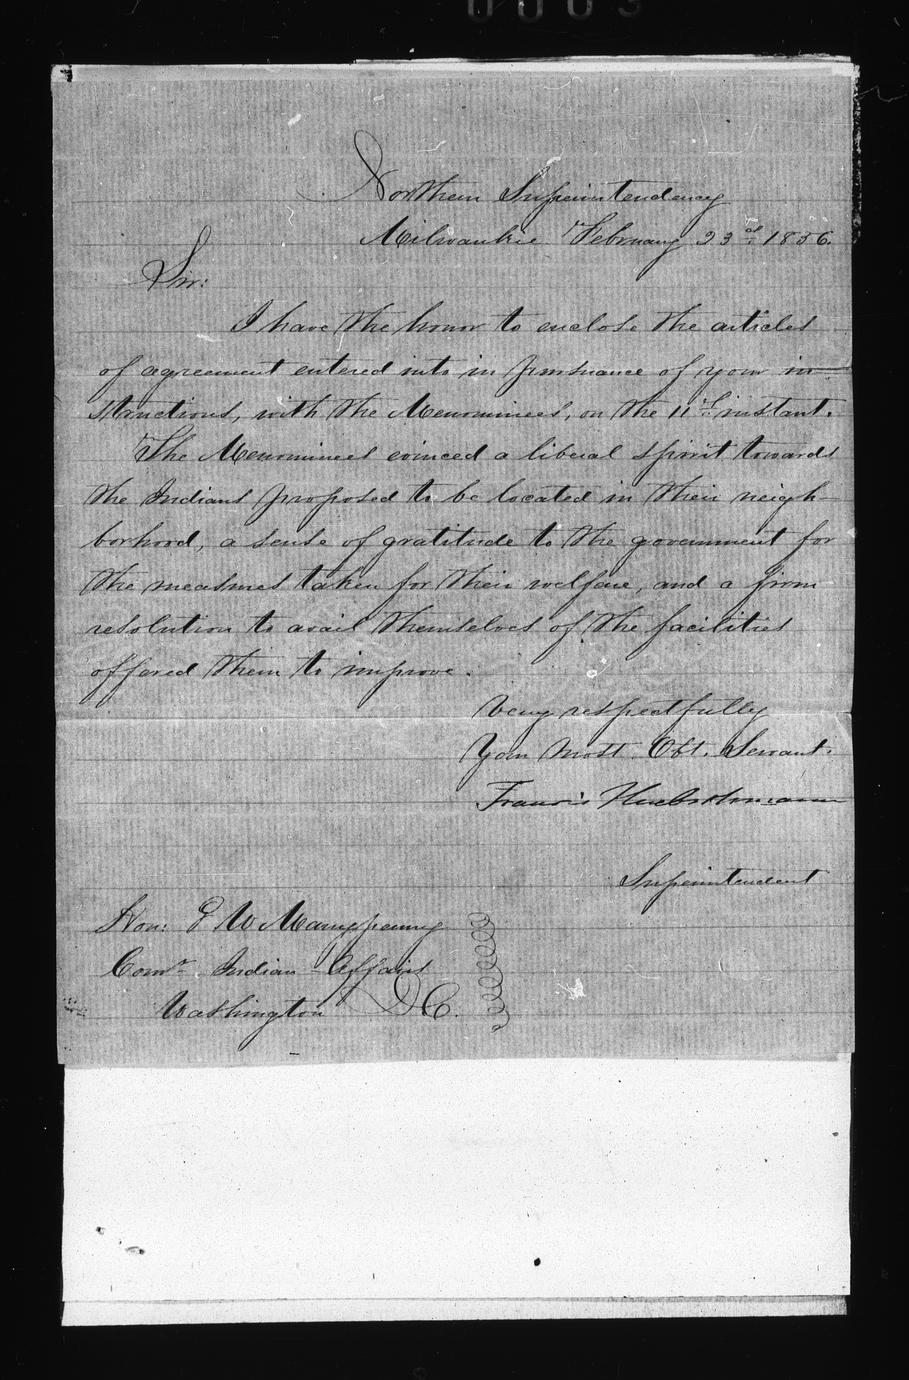 0003
Northern Superintendency
Milwaukie February 23d 1856.
Sir:
I have the honor to enclose the articles
of agreement entered into in pursuance of your in-
structions, with the Menominees, on the 11th instant.
The Menominees evinced a liberal spirit towards
the Indians proposed to be located in their neigh-
borhood, a sense of gratitude to the government for
the measures taken for their welfare, and a firm
resolution to avail themselves of the facilities
offered them to improve.
Very respectfully
Your Most Obt. Servant.
Francis Huebschmann
Superintendent
Hon: G W Manypenny
Comr Indian Affairs
Washington D C.